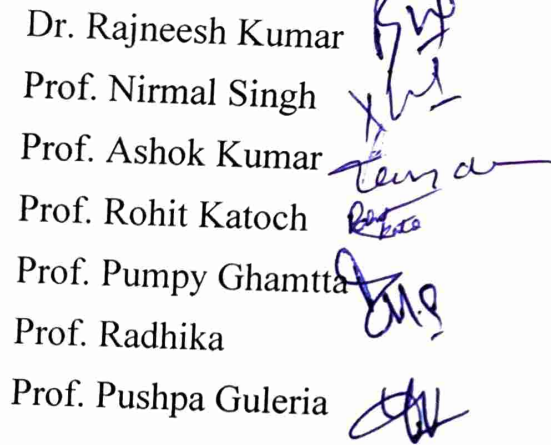 Dr. Rajneesh Kumar
Prof. Nirmal Singh
Prof. Ashok Kumar
Prof. Rohit Katoch
Prof. Pumpy Ghamtta
Prof. Radhika
Prof. Pushpa Guleria